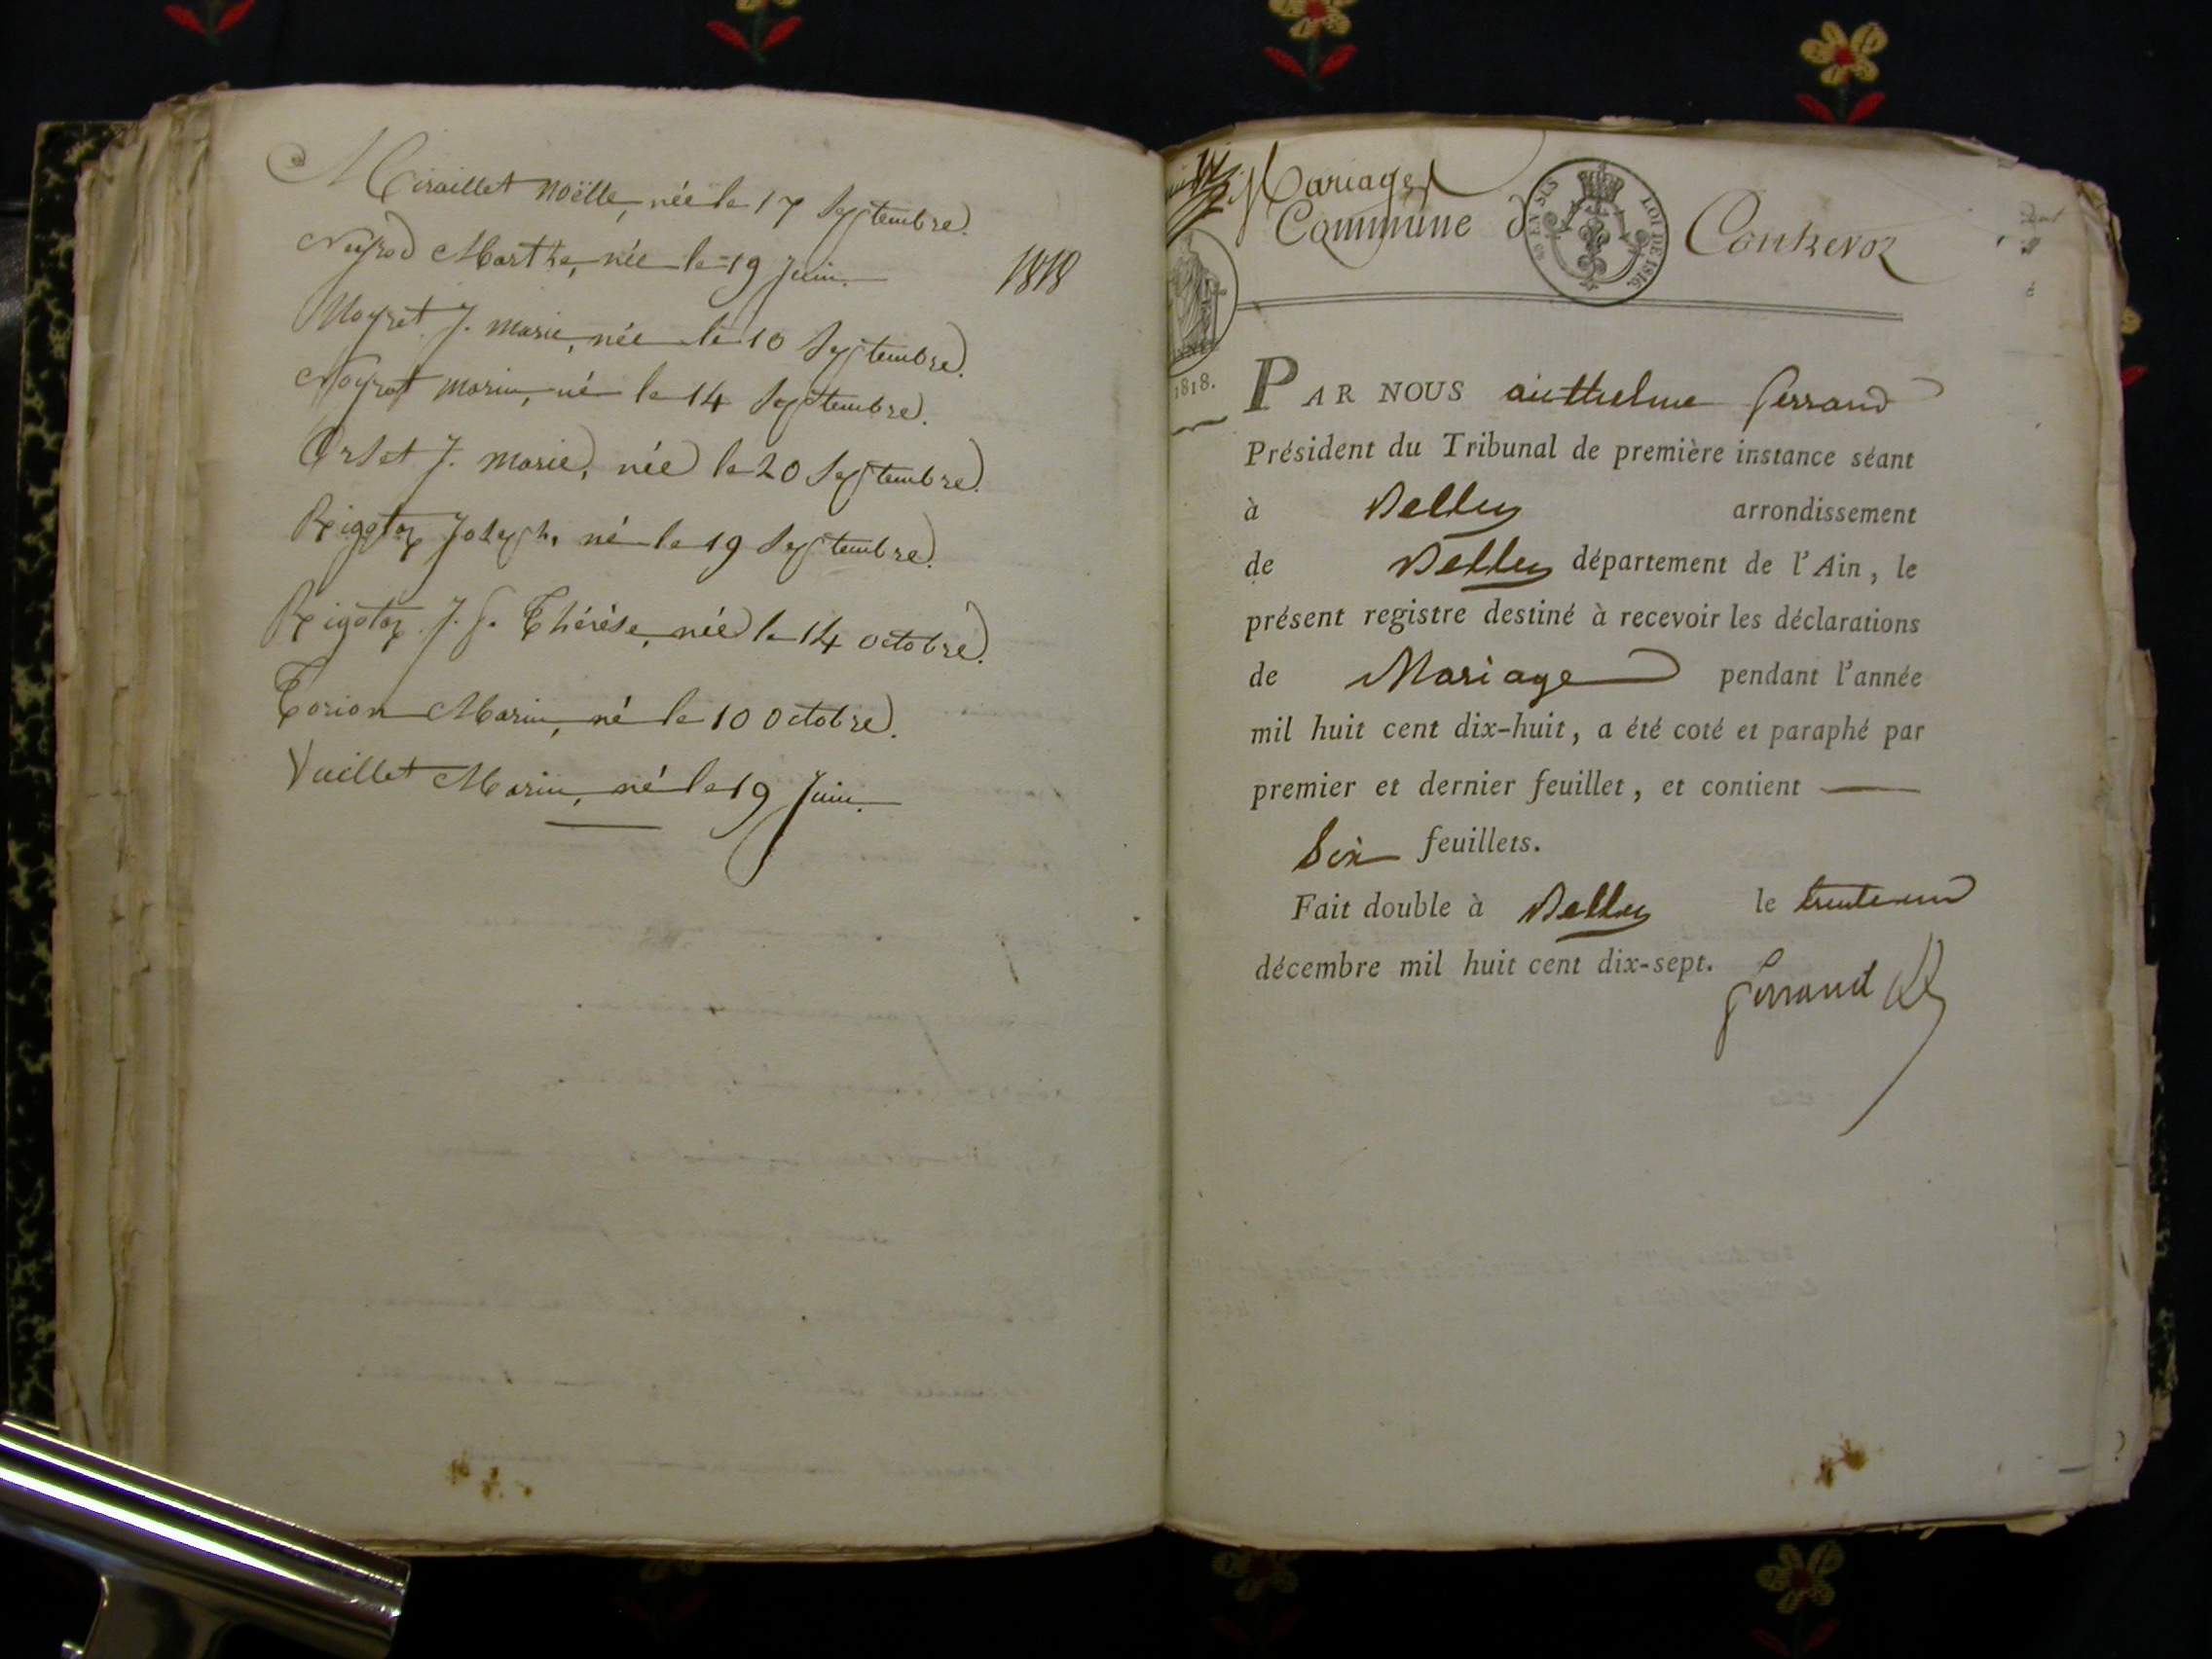 Miraillet Noëlle, née le 17 Septembre.
Neyrod Marthe, née le 19 Juin.
1818
Moyret J. Marie, née le 10 Septembre.
Noyrat Marin, né le 14 Septembre.
Orset J. Marie, née le 20 Septembre.
Rigotoz Joseph, né le 19 Septembre.
Rigotoz J. f. Thérèse, née le 14 octobre.
Torion Marin, né le 10 Octobre.
Vuillet Marin, né le 19 Juin.
Mariages
Commune d
EN SUS LOI DE 1816.
Conzevoz
1818.
PAR NOUS anthelme ferrand
Président du Tribunal de première instance séant
à Belley arrondissement
de Belley département de l'Ain, le
présent registre destiné à recevoir les déclarations
de Mariage pendant l'année
mil huit cent dix-huit, a été coté et paraphé par
premier et dernier feuillet, et contient
Six feuillets.
Fait double à Belley le trente un
décembre mil huit cent dix-sept.
ferrand